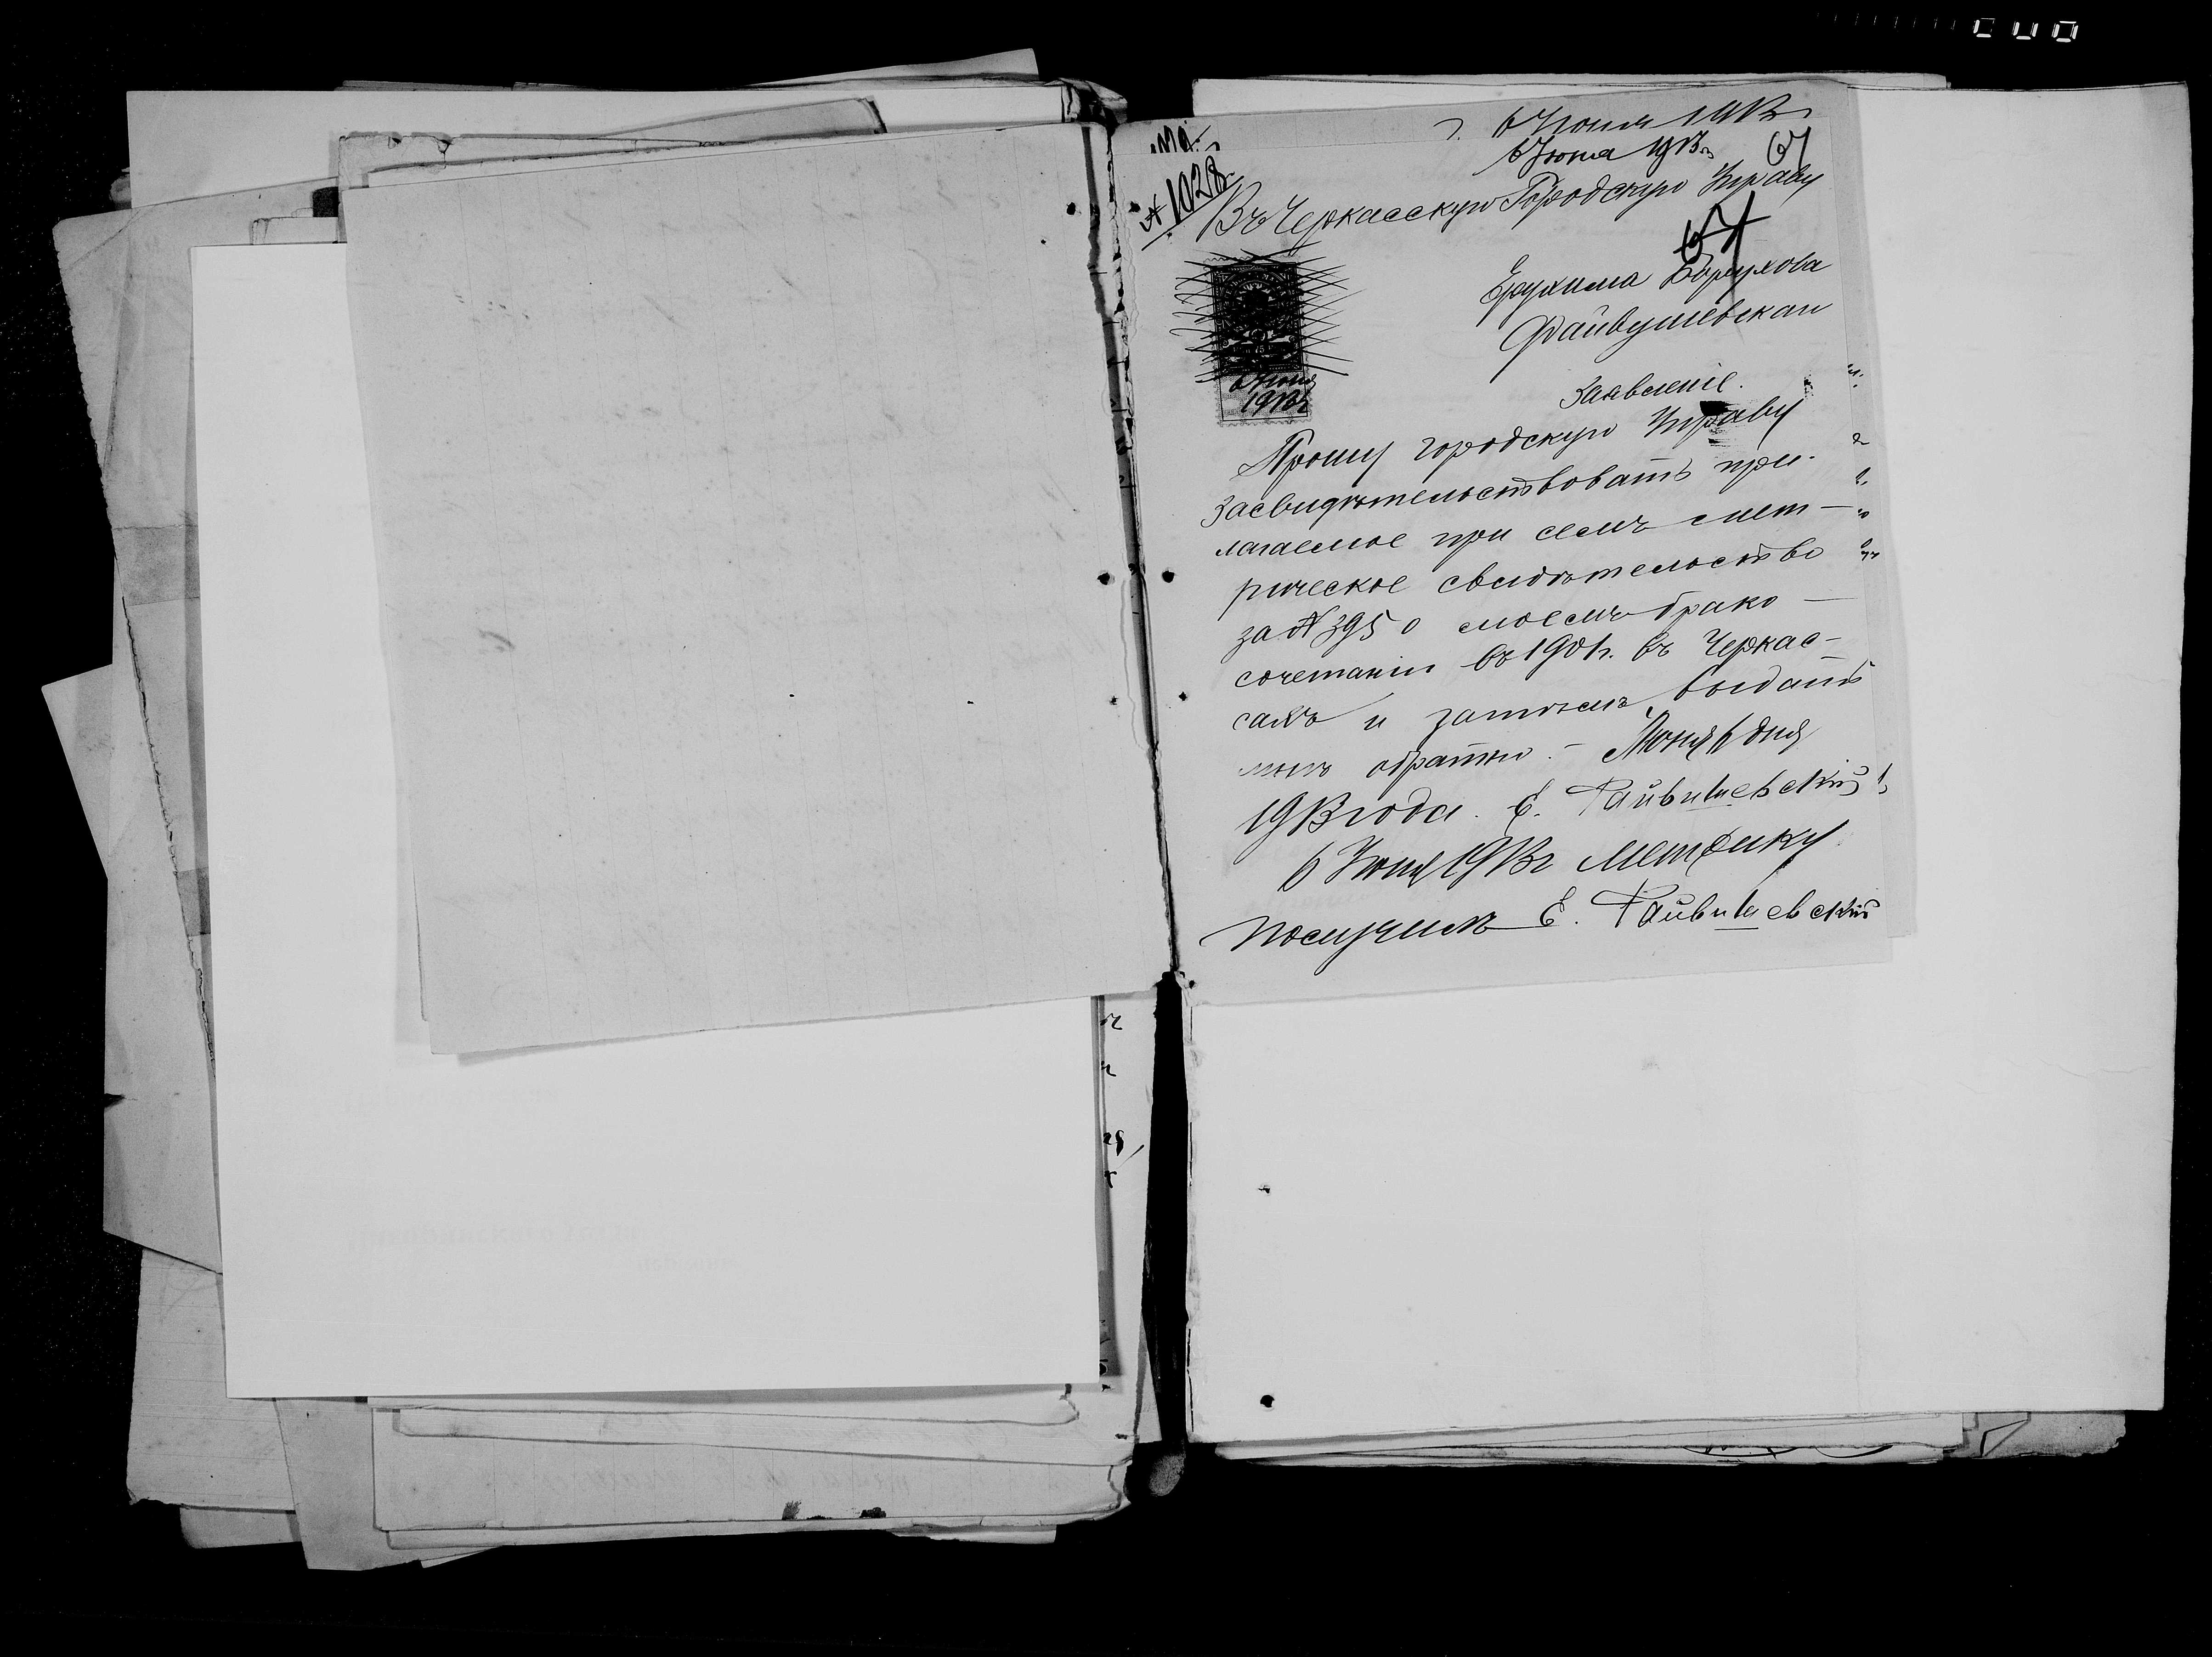 6 Июня 1913 г.
6 Июня 1913 г.
67
№ 1028
Въ Черкасскую Городскую Управу
67
Ерухима Борухова
Файвушевскаго
6 Июня
1913 г.
Заявленіе.
Прошу городскую Управу
засвидѣтельствовать при-
лагаемое при семъ мет-
рическое свидѣтельство
за № 395 о моемъ брако-
сочетаніи въ 1901 г. въ Черкас-
сахъ и затѣмъ выдать
мнѣ обратно. - Июня 6 дня
1913 года. Е. Файвишевскій
6 Июня 1913 г. метрику
получилъ Е. Файвишевскій